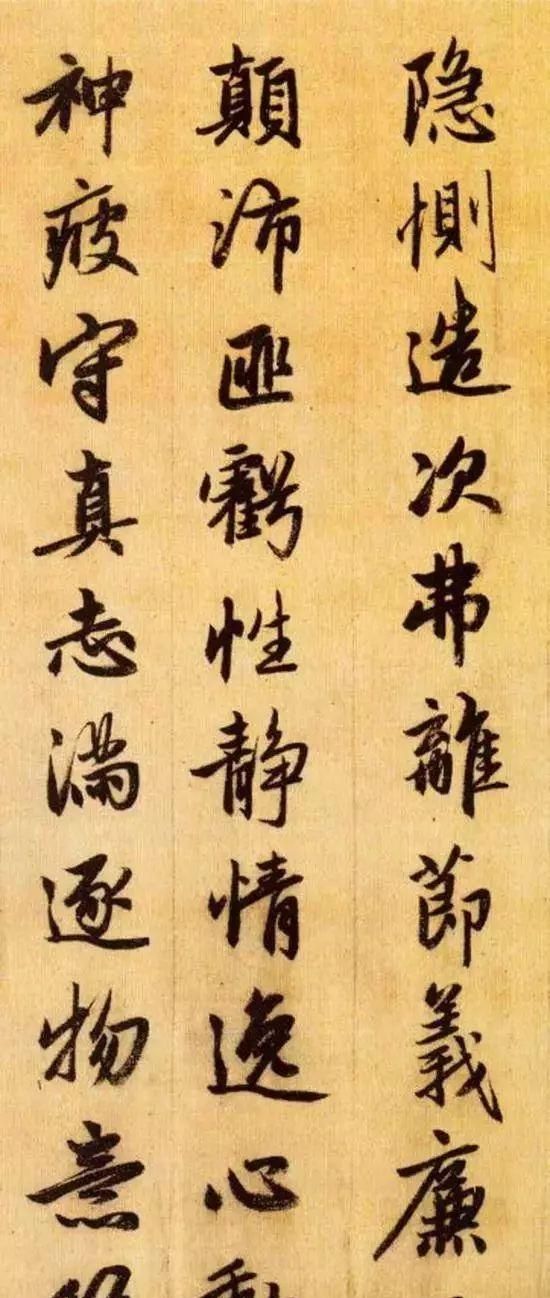 隐惻造次弗離節義廉
顛沛匪虧性静情逸心
神疲守真志滿逐物意